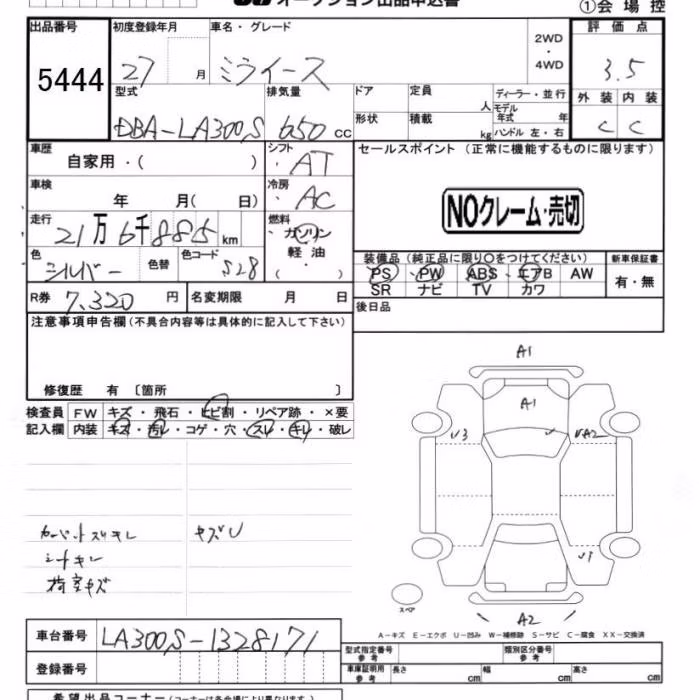 オークション出品申込書
①会場控
出品番号 初度登録年月 車名・グレード 2WD・4WD 評価点
5444 27 月 ミライース 3.5
型式 排気量 ドア 定員 人 ディーラー・並行 外装 内装
DBA-LA300S 650 cc 形状 積載 kg モデル年式 年 ハンドル 左・右 C C
車歴 自家用・( ) シフト AT セールスポイント (正常に機能するものに限ります)
車検 年 月( 日) 冷房 AC
NOクレーム・売切
走行 21万6千885km 燃料 ガソリン・軽油・( )
色 シルバー 色替 色コード S28
装備品 (純正品に限り○をつけてください) 新車保証書
PS PW ABS エアB AW 有・無
SR ナビ TV カワ
R券 7,320 円 名変期限 月 日 後日品
注意事項申告欄(不具合内容等は具体的に記入して下さい)
修復歴 有 〔箇所 〕
検査員 FW キズ・飛石・ヒビ割・リペア跡・×要
記入欄 内装 キズ・汚レ・コゲ・穴・スレ・キレ・破レ
カーペットスリキレ キズU
シートキレ
荷室キズ
A1
A1
U3 UA2
U3
スペア
A2
A-キズ E-エクボ U-凹み W-補修跡 S-サビ C-腐食 XX-交換済
車台番号 LA300S-1328171
登録番号
型式指定番号 参考 類別区分番号 参考
車庫証明用 参考 長さ cm 幅 cm 高さ cm
希望出品コーナー(コーナーは各会場により異なります)